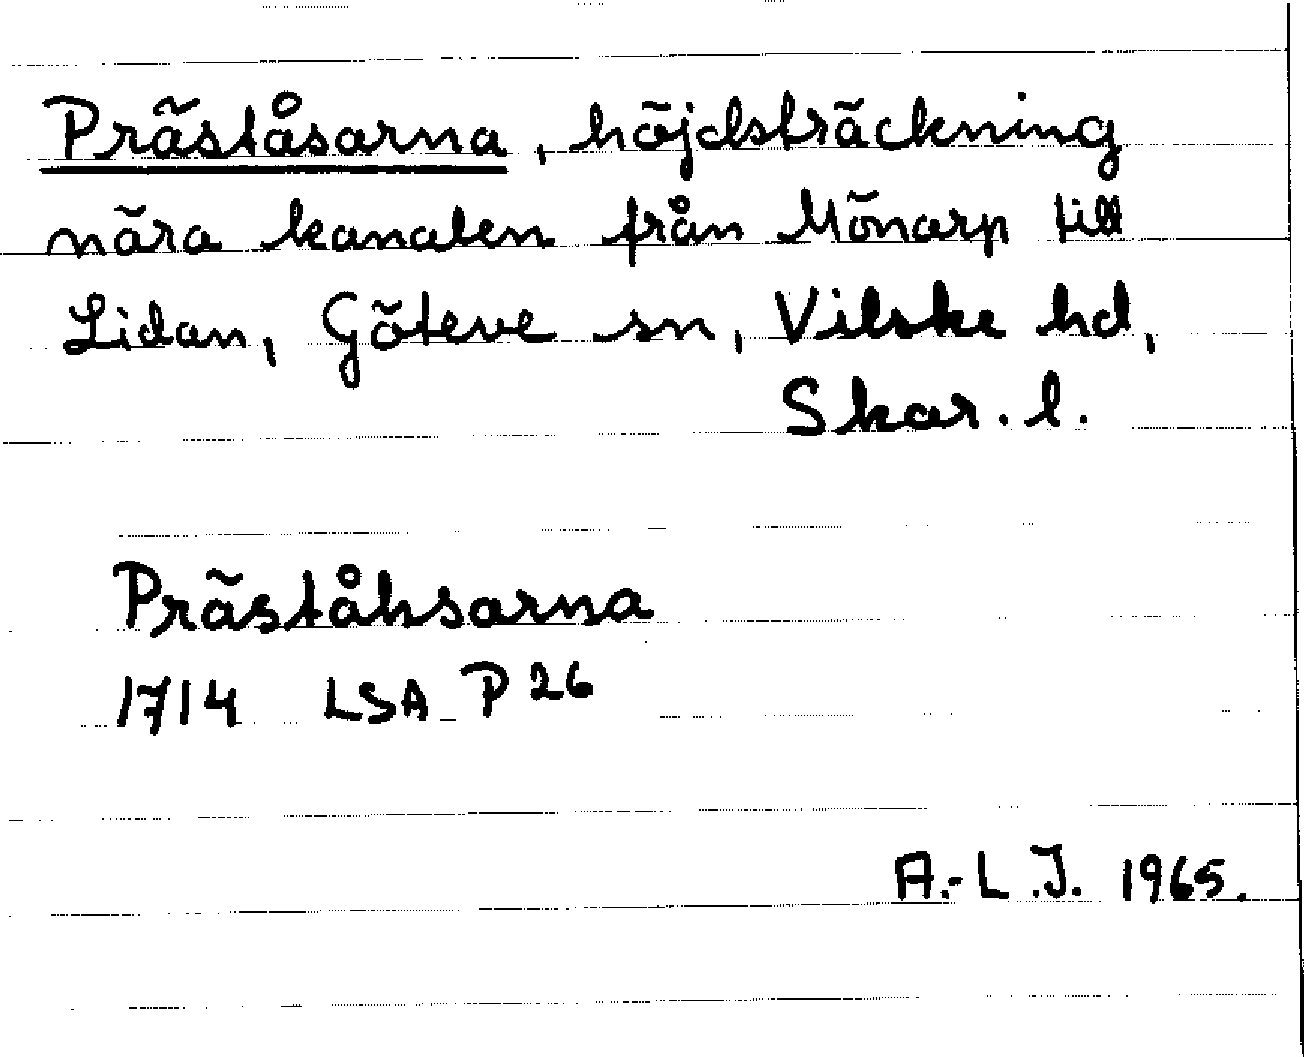 Präståsarna, höjdsträckning
nära kanalen från Mönarp till
Lidan, Göteve sn, Vilske hd,
Skar. l.
Präståhsarna
1714 LSA P 26
A.-L.J. 1965.